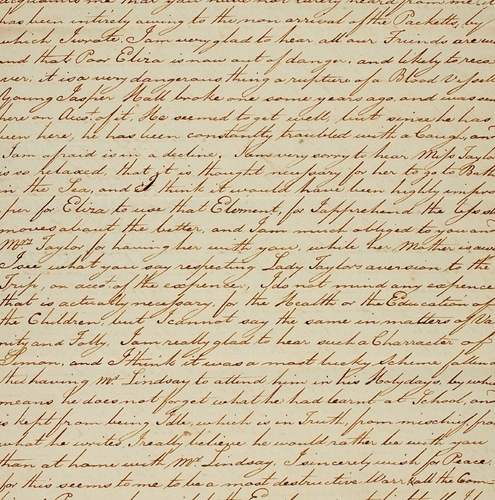 has been intirely owing to the non arrival of the Packetts, by
which I wrote. I am very glad to hear all our Friends are w
and that Poor Eliza is now out of danger, and likely to reco
ver; it is a very dangerous thing a rupture of a Blood Vessel
Young Jasper Hall broke one some years ago, and was s
here on Acct of it. He seemed to get well, but since he has
been here, he has been constantly troubled with a Cough, an
I am afraid is in a decline. I am very sorry to hear Miss Taylor
is so relaxed, that it is thought necessary for her to go to Bath
in the Sea, and I think it would have been highly impro
per for Eliza to use that Element, for I apprehend the less s
moves about the better, and I am much obliged to you and
Mrs Taylor for having her with you, while her Mother is
I see what you say respecting Lady Taylors aversion to the
Trip, on acct of the expence, I do not mind any expence
that is actually necessary, for the Health or the Education of
the Children; but I cannot say the same in matters of Va
nity and Folly. I am really glad to hear such a Character of
Simon, and I think it was a most lucky Scheme fallen
the having Mr Lindsay to attend him in his Holydays, by wh
means he does not forget what he had learnt at School, an
is kept from being Idle, which is in Truth, from mischief, fro
what he writes, I really believe he would rather be with you
than at home with Mr Lindsay. I sincerely wish for Peace
for this seems to me to be a most destructive War & all the Com